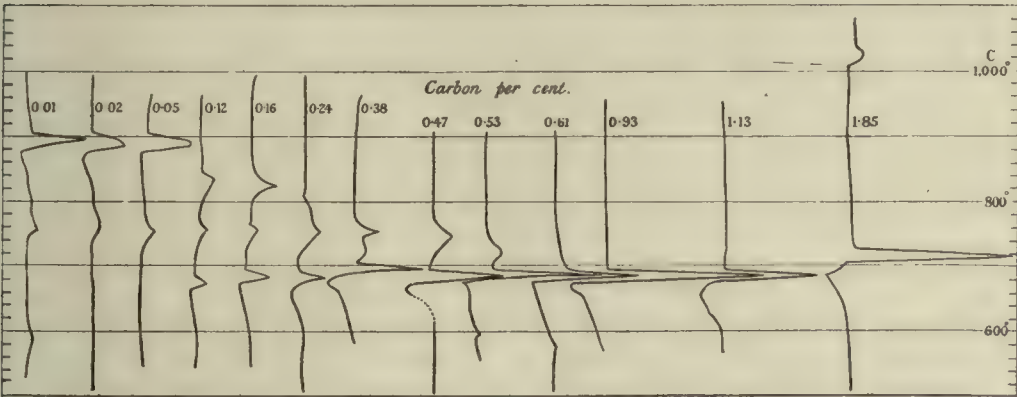 C
1,000°
Carbon per cent.
0·01 0·02 0·05 0·12 0·16 0·24 0·38 0·47 0·53 0·61 0·93 1·13 1·85
800°
600°